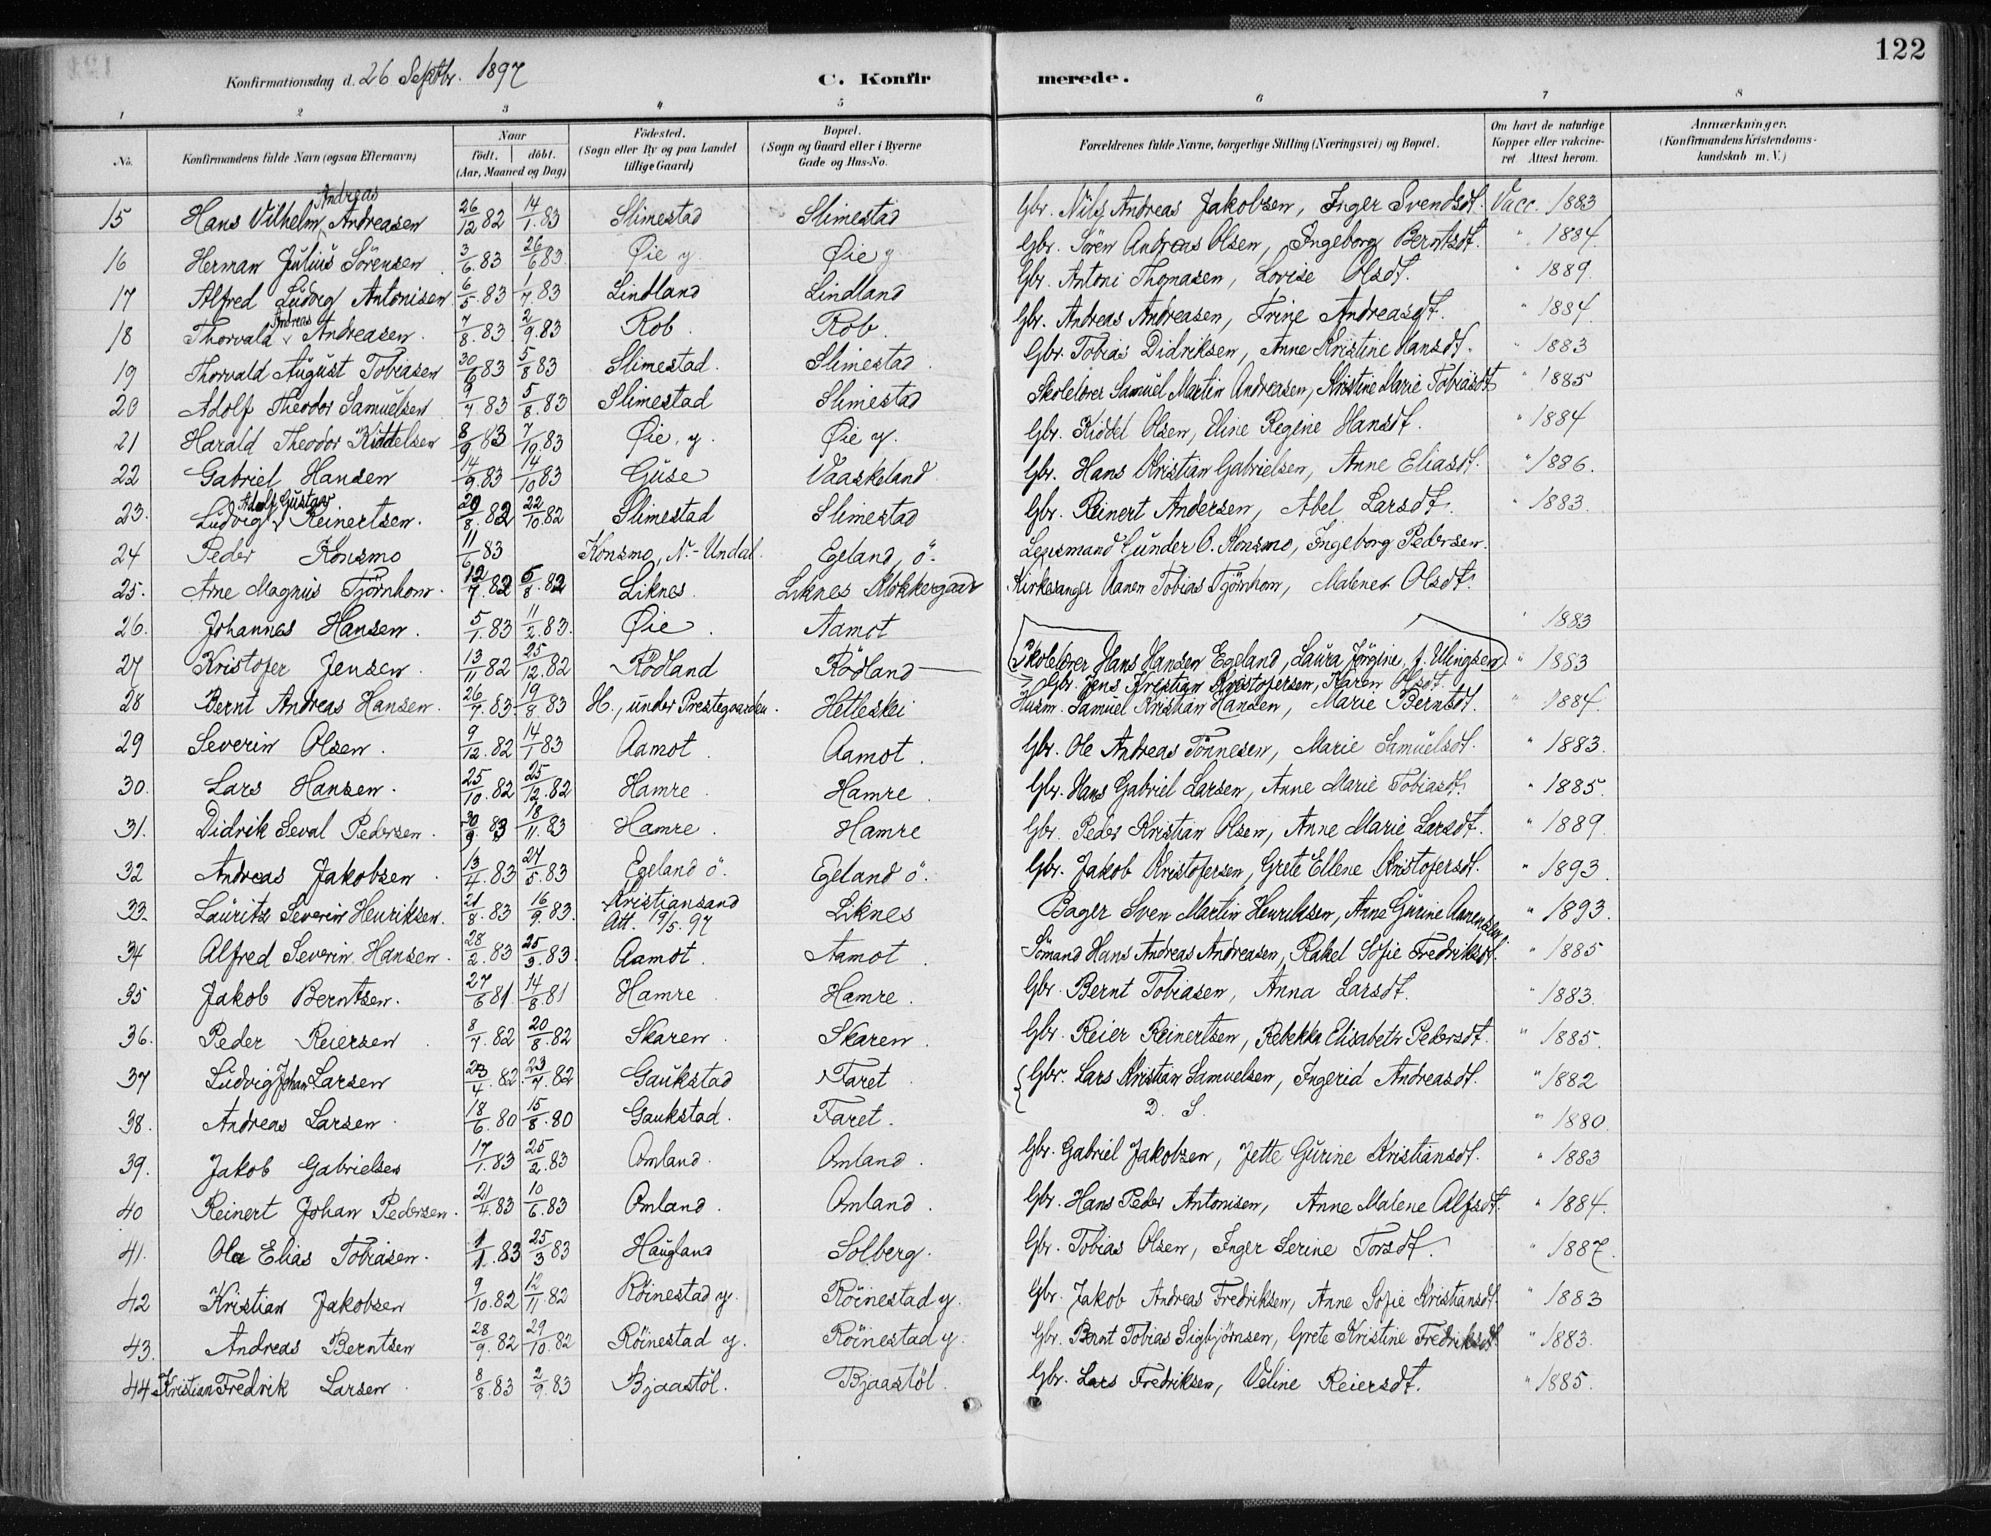 122
Konfirmationsdag d. 26 Septbr. 1897
C. Konfirmerede.
1 2 3 4 5 6 7 8
No. Konfirmandens fulde Navn (ogsaa Efternavn) Naar født. døbt. (Aar, Maaned og Dag) Fødested. (Sogn eller By og paa Landet tillige Gaard) Bopæl. (Sogn og Gaard eller i Byerne Gade og Hus-No. Forældrenes fulde Navne, borgerlige Stilling (Næringsvei) og Bopæl. Om havt de naturlige Kopper eller vakcineret Attest herom. Anmærkninger. (Konfirmandens Kristendomskundskab m. V.)
15 Hans Vilhelm Andreas Andreasen 26/12 82 14/1 83 Slimestad Slimestad Gbr. Nils Andreas Jakobsen, Inger Svendsdt. Vacc. 1883
16 Herman Julius Sörensen 3/6 83 26/6 83 Øie y. Øie y Gbr. Sören Andreas Olsen, Ingeborg Berntsdt. " 1884
17 Alfred Ludvig Antonisen 6/5 83 1/7 83 Lindland Lindland Gbr. Antoni Thomasen, Lovise Olsdt. " 1889
18 Thorvald Andreas Andreasen 7/8 83 2/9 83 Rob. Rob. Gbr. Andreas Andreasen, Trine Andreasdt. " 1884
19 Thorvald August Tobiasen 30/6 83 5/8 83 Slimestad. Slimestad. Gbr. Tobias Didriksen, Anne Kristine Hansdt. " 1883
20 Adolf Theodor Samuelsen 9/7 83 5/8 83 Slimestad Slimestad Skolelærer Samuel Martin Andreasen, Kristine Marie Tobiasdt " 1885
21 Harald Theodor Kiddelsen 8/9 83 7/10 83 Øie, y. Øie y. Gbr. Kiddel Olsen, Eline Regine Hansdt. " 1884
22 Gabriel Hansen 14/9 83 14/10 83 Guse Vaaskeland Gbr. Hans Kristian Gabrielsen, Anne Eliasdt. " 1886.
23. Ludvig Adolf Gustav Reinertsen. 20/8 82 22/10 82 Slimestad Slimestad Gbr. Reinert Andersen, Abel Larsdt. " 1883.
24 Peder Konsmo 11/6 83 Konsmo, N.-Undal. Egeland, ö. Lensmand Gunder O. Konsmo, Ingeborg Pedersen.
25. Arne Magnus Tjörnhom. 12/7 82 6/8 82 Liknes. Liknes Klokkergaar Kirkesanger Aanen Tobias Tjörnhom, Malene Olsdt.
26. Johannes Hansen. 5/1 83 11/2 83. Øie. Aamot " 1883
27 Kristofer Jensen 13/11 82 25/12 82 Rödland Rödland Skolelærer Hans Hansen Egeland, Laura Jørgine, f. Ulingsen " 1883
Gbr. Jens Kristian Kristofersen, Karen Olsdt.
28 Bernt Andreas Hansen. 26/7 83 19/8 83 H., under Prestegaarden. Hetleskei Husm. Samuel Kristian Hansen, Marie Berntsdt. " 1884.
29 Severin Olsen. 9/12 82 14/1 83 Aamot. Aamot. Gbr. Ole Andreas Tönnesen, Marie Samuelsdt. " 1883.
30. Lars Hansen. 25/10 82 25/12 82 Hamre. Hamre. Gbr. Hans Gabriel Larsen, Anne Marie Tobiasdt. " 1885.
31. Didrik Seval Pedersen. 30/9 83 18/11 83 Hamre. Hamre Gbr. Peder Kristian Olsen, Anne Marie Larsdt. " 1889.
32 Andreas Jakobsen. 13/4 83 27/5 83 Egeland ö. Egeland ö. Gbr. Jakob Kristofersen, Grete Ellene Kristofersdt. " 1893.
33. Lauritz Severin Henriksen. 21/8 83 16/9 83. Kristiansand Att. 19/5.97 Liknes Bager Sven Martin Henriksen, Anne Gurine Aanensen " 1893.
34 Alfred Severin Hansen. 28/2 83 25/3 83. Aamot. Aamot. Sömand Hans Andreas Andreasen, Rakel Sofie Fredriksdt. " 1885
35 Jakob Berntsen. 27/6 81 14/8 81 Hamre. Hamre. Gbr. Bernt Tobiasen, Anna Larsdt. " 1883.
36. Peder Reiersen 8/7 82 20/8 82 Skaren. Skaren. Gbr. Reier Reinertsen, Rebekka Elisabeth Pedersdt. " 1885.
37 Ludvig Johan Larsen 23/4 82 23/7 82 Gaukstad Faret Gbr. Lars Kristian Samuelsen, Ingerid Andreasdt. " 1882
38. Andreas Larsen. 18/6 80 15/8 80 Gaukstad. Faret. D. S. " 1880.
39. Jakob Gabrielsen 17/1 83 25/2 83 Omland. Omland. Gbr. Gabriel Jakobsen, Jette Gurine Kristiansdt. " 1883
40 Reinert Johan Pedersen. 21/4 83 10/6 83 Omland. Omland. Gbr. Hans Peder Antonisen, Anne Malene Alfsdt. " 1884.
41. Ole Elias Tobiasen. 1/1 83 25/3 83 Haugland Solberg. Gbr. Tobias Olsen, Inger Serine Torsdt. " 1887.
42 Kristian Jakobsen 9/10 82 12/11 82 Röinestad y. Röinestad y. Gbr. Jakob Andreas Fredriksen, Anne Sofie Kristiansdt. " 1883
43. Andreas Berntsen 28/9 82 29/10 82 Röinestad y. Röinestad y. Gbr. Bernt Tobias Sigbjörnsen, Grete Kristine Fredriksdt " 1883.
44 Kristian Fredrik Larsen. 8/8 83 2/9 83 Bjaastöl. Bjaastöl. Gbr. Lars Fredriksen, Veline Reiersdt. " 1885.